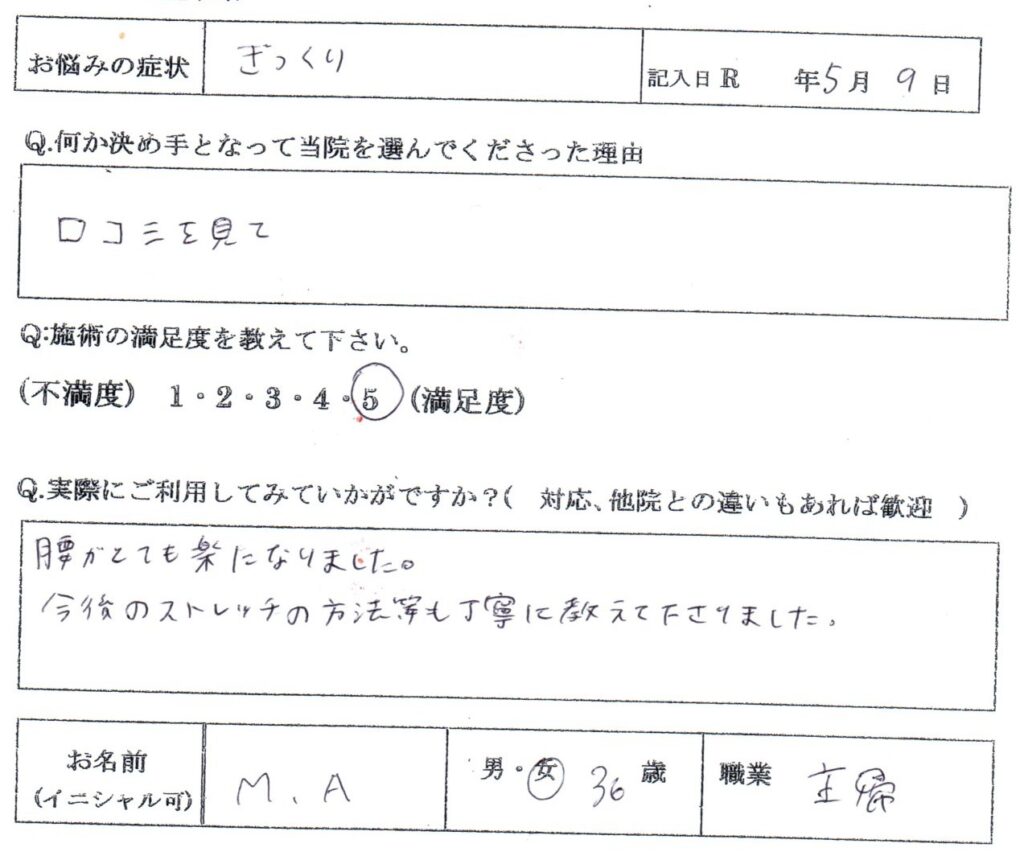 お悩みの症状 ぎっくり 記入日R 年5月9日
Q.何か決め手となって当院を選んでくださった理由
口コミを見て
Q:施術の満足度を教えて下さい。
(不満度) 1・2・3・4・5 (満足度)
Q.実際にご利用してみていかがですか?( 対応、他院との違いもあれば歓迎 )
腰がとても楽になりました。
今後のストレッチの方法等も丁寧に教えて下さりました。
お名前 (イニシャル可) M.A 男・女 36歳 職業 主婦